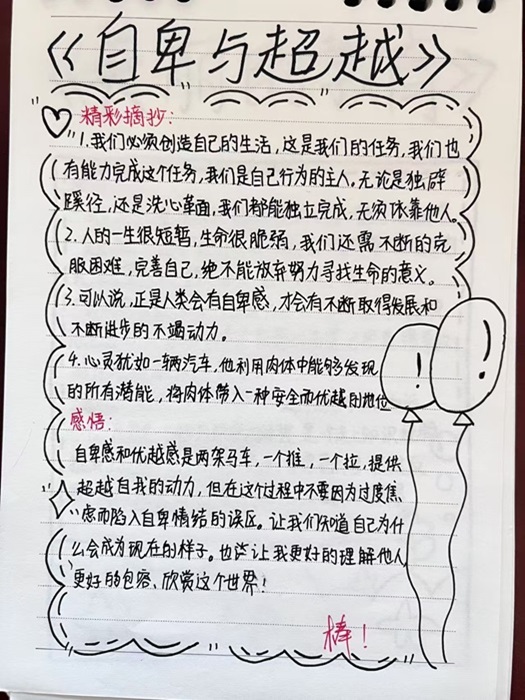 《自卑与超越》
精彩摘抄:
1.我们必须创造自己的生活,这是我们的任务,我们也
有能力完成这个任务,我们是自己行为的主人。无论是独辟
蹊径,还是洗心革面,我们都能独立完成,无须依靠他人。
2.人的一生很短暂,生命很脆弱,我们还需不断的克
服困难,完善自己,绝不能放弃努力寻找生命的意义。
3.可以说,正是人类会有自卑感,才会有不断取得发展和
不断进步的不竭动力。
4.心灵犹如一辆汽车,他利用肉体中能够发现
的所有潜能,将肉体带入一种安全而优越的地位
感悟:
自卑感和优越感是两架马车,一个推,一个拉,提供
超越自我的动力,但在这个过程中不要因为过度焦
虑而陷入自卑情结的误区。让我们知道自己为什
么会成为现在的样子。也让我更好的理解他人
更好的包容、欣赏这个世界!
棒!